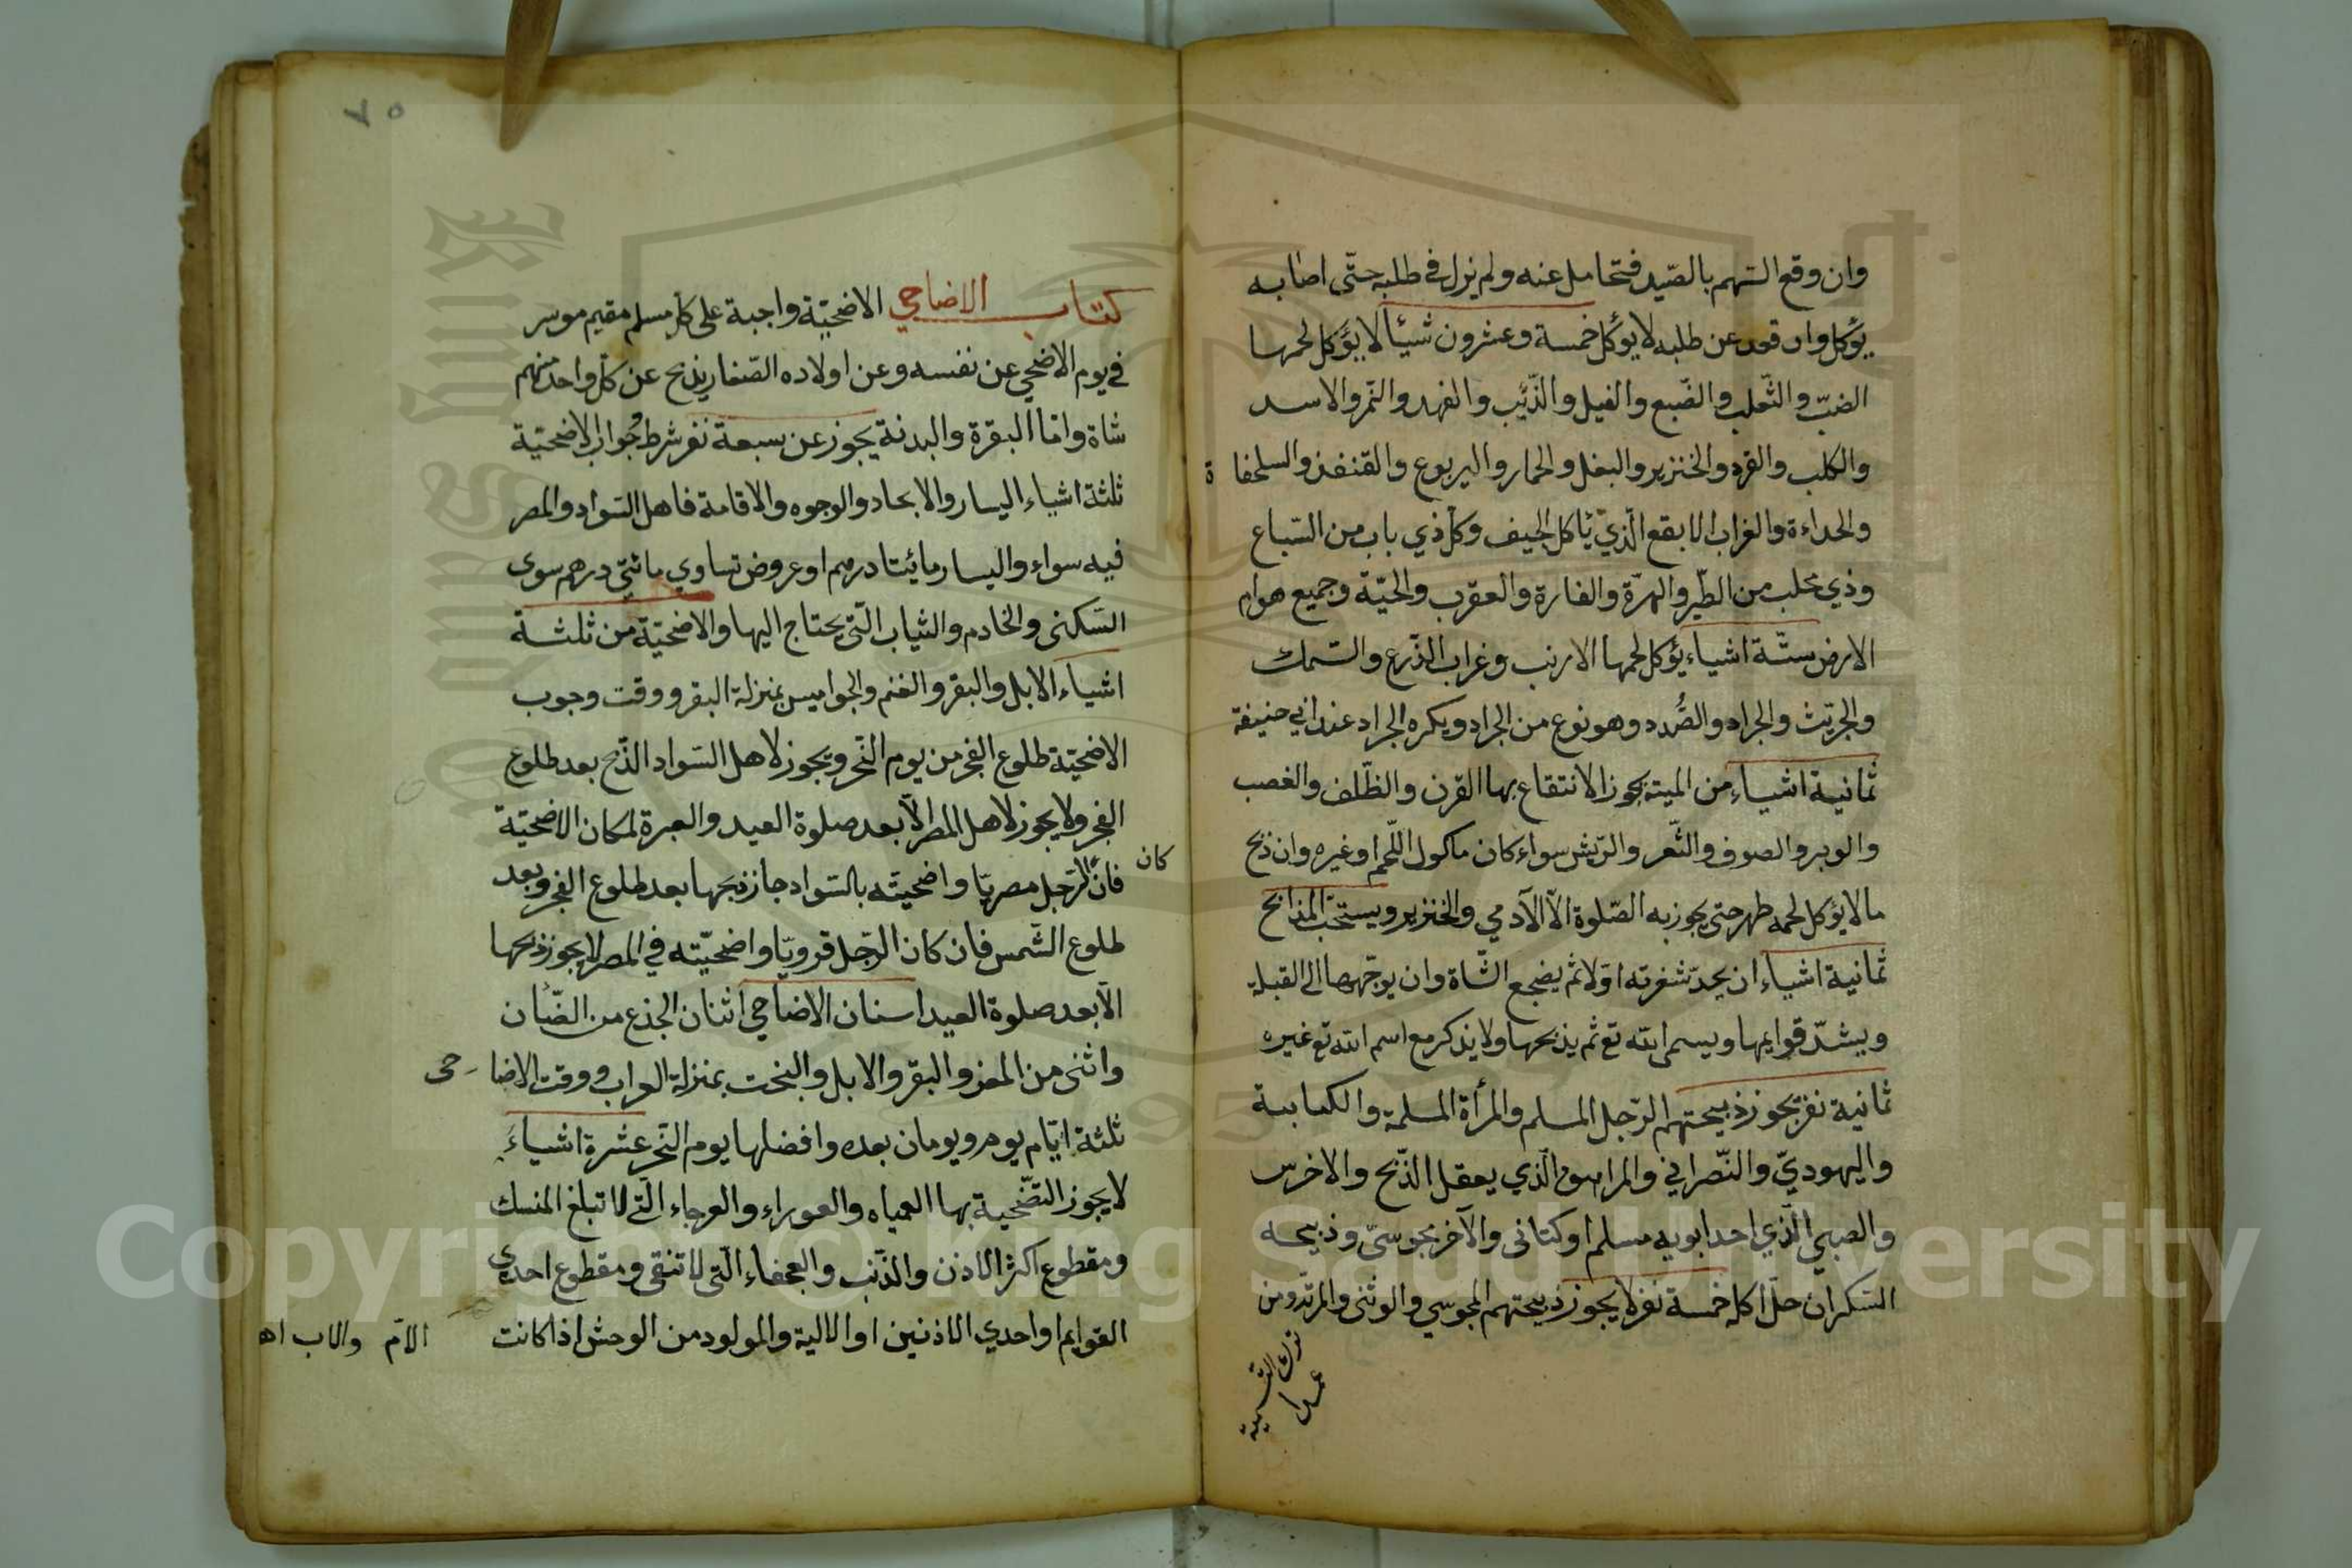 وان وقع السّهم بالصّيد فتحامل عنه ولم يزل في طلبه حتّى اصابه
يؤكل وان قعد عن طلبه لا يؤكل خمسة وعشرون شيئا لا يؤكل لحمها
الضبّ والثّعلب والضّبع والفيل والذّئب والفهد والنّمر والاسد
والكلب والقرد والخنزير والبغل والحمار واليربوع والقنفذ والسلحفاة
والحداءة والغراب الابقع الّذي ياكل الجيف وكل ذي باب من السّباع
وذي مخلب من الطّير والهرّة والفارة والعقرب والحيّة وجميع هوام
الارض ستّة اشياء يؤكل لحمها الارنب وغراب الذّرع والسّمك
والجرّيث والجراد والصُّدد وهو نوع من الجراد ويكره الجراد عند ابي حنيفة
ثمانية اشياء من الميتة يجوز الانتقاع بها القرن والظّلف والغصب
والوبر والصوف والشّعر والرّيش سواء كان ماكول اللّحم او غيره وان ذبح
مالا يؤكل لحمه طهر حتى يجوز به الصّلوة الّا الآدمي والخنزير ويستحبّ المذابح
ثمانية اشياء ان يحدّ شفرته اوّلا ثم يضجع الشّاة وان يوجّهها الى القبلة
ويشدّ قوايمها ويسمى الله تع ثم يذبحها ولا يذكر مع اسم الله تع غيره
ثمانية نفر يجوز ذبيحتهم الرّجل المسلم والمرأة المسلمة والكتابية
واليهوديّ والنّصراني والمراهق الّذي يعقل الذّبح والاخرس
والصبي الّذي احد ابويه مسلم او كتابى والآخر مجوسىّ وذبيحه
السّكران حلّ اكله خمسة نفر لا يجوز ذبيحتهم المجوسي والوثنى والمرتدّ ومن
ترك التسمية
عمدا
كتاب الاضاحي الاضحيّة واجبة على كل مسلم مقيم موسر
في يوم الاضحي عن نفسه وعن اولاده الصّغار يذبح عن كل واحد منهم
شاة وامّا البقرة والبدنة يجوز عن سبعة نفر شرط جواز الاضحيّة
ثلثة اشياء اليسار والوجوه والاقامة فاهل السّواد والمصر
فيه سواء واليسار مائيتا درهم او عروض تساوي مائتى درهم سوى
السّكنى والخادم والثياب الّتي يحتاج اليها والاضحيّة من ثلثة
اشياء الابل والبقر والغنم والجواميس بمنزلة البقر ووقت وجوب
الاضحيّة طلوع الفجر من يوم النّحر ويجوز لاهل السّواد الذّبح بعد طلوع
الفجر ولا يجوز لاهل المصر الّا بعد صلوة العيد والعبرة لمكان الاضحيّة
كان
فانّ الرّجل مصريّا واضحيته بالسّواد جاز ذبحها بعد طلوع الفجر وبعد
طلوع الشّمس فان كان الرّجل قرويّا واضحيّته في المصر لا يجوز ذبحها
الّا بعد صلوة العيد اسنان الاضاحي اثنان الجذع من الضّان
واثنى من المعز والبقر والابل والبخت بمنزلة العراب ووقت الاضاحى
ثلثة ايّام يوم ويومان بعده وافضلها يوم النّحر عشرة اشياء
لا يجوز التضّحية بها العمياء والعوراء والعرجاء الّتي لا تبلغ المنسك
ومقطوع اكثر الاذن والذّنب والعجفاء الّتي لا تنقى ومقطوع احدى
القوايم او احدي الاذنين او الالية والمولود من الوحش اذا كانت
الامّ والاب اه